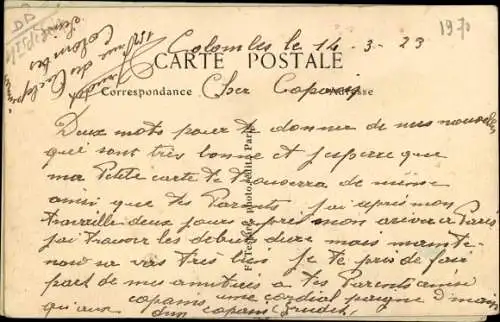 1970
Colombes le 14-3-23
CARTE POSTALE
Correspondance
Adresse
Cher Copain
Deux mots pour te donner de mes nouvelles
qui sont très bonne et j'esperre que
ma Petite carte te trouverra de même
ainsi que tes Parents j'ai repris mon
travaille deux jours apres mon arriver a Paris
j'ai trouver les debuts dure mais mainte-
nant sa vas très bien Je te prie de fair
part de mes amitiées a tes Parents ainsi
qu'aux copains, une cordial poigne d'main
d'un copain
rue des
Colombes
Seine